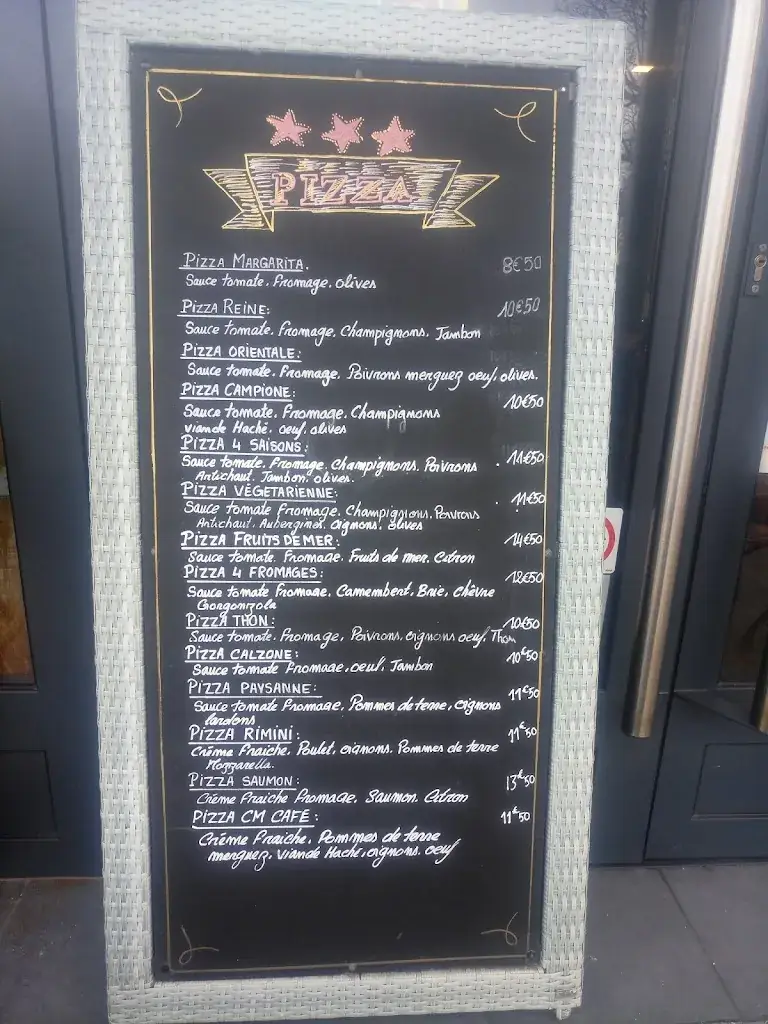 PIZZA
PIZZA MARGARITA. 8€50
Sauce tomate. Fromage. olives
PIZZA REINE: 10€50
Sauce tomate. Fromage. Champignons. Jambon
PIZZA ORIENTALE:
Sauce tomate. Fromage. Poivrons merguez oeuf. olives.
PIZZA CAMPIONE: 10€50
Sauce tomate. Fromage. Champignons
viande Haché. oeuf. olives
PIZZA 4 SAISONS: 11€50
Sauce tomate. Fromage. Champignons. Poivrons
Artichaut. Jambon. olives.
PIZZA VÉGETARIENNE: 11€50
Sauce tomate Fromage. Champignons. Poivrons
Artichaut. Aubergines. oignons. olives
PIZZA FRUITS DE MER: 14€50
Sauce tomate. Fromage. Fruits de mer. Citron
PIZZA 4 FROMAGES: 12€50
Sauce tomate Fromage. Camembert. Brie, chèvre
Gorgonzola
PIZZA THON: 10€50
Sauce tomate. Fromage, Poivrons, oignons oeuf. Thon
PIZZA CALZONE: 10€50
Sauce tomate Fromage. oeuf. Jambon
PIZZA PAYSANNE: 11€50
Sauce tomate Fromage. Pommes de terre, oignons
lardons
PIZZA RIMINI: 11€50
Crème Fraiche, Poulet, oignons. Pommes de terre
Mozzarella.
PIZZA SAUMON: 13€50
Crème Fraiche Fromage. Saumon. Citron
PIZZA CM CAFÉ: 11€50
Crème Fraiche. Pommes de terre
merguez. Viande Haché, oignons. oeuf